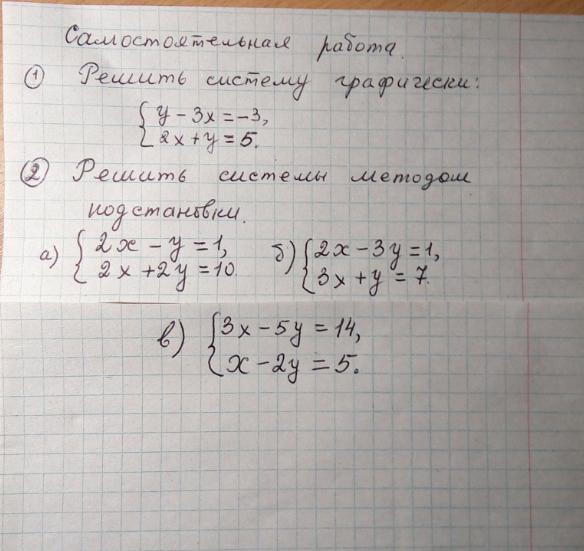 Самостоятельная работа.
① Решить систему графически:
{ y - 3x = -3,
2x + y = 5.
② Решить системы методом
подстановки.
а) { 2x - y = 1, б) { 2x - 3y = 1,
2x + 2y = 10. 3x + y = 7.
в) { 3x - 5y = 14,
x - 2y = 5.